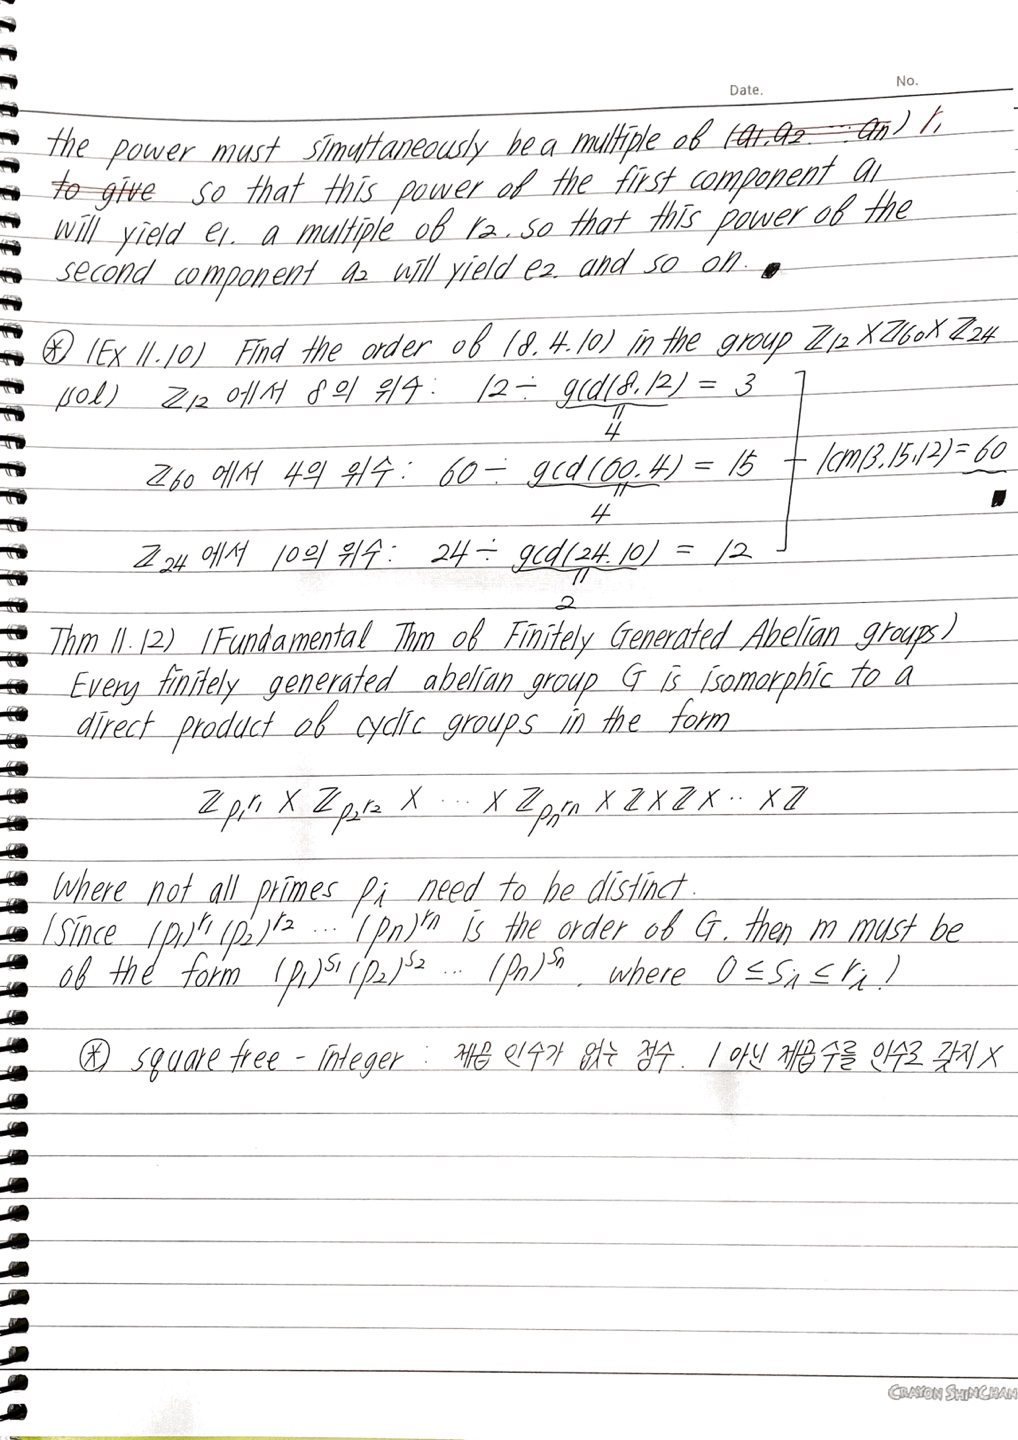 Date. No.
the power must simultaneously be a multiple of (a1, a2 ... an) r1
to give so that this power of the first component a1
will yield e1. a multiple of r2. so that this power of the
second component a2 will yield e2. and so on. ■
⊛ (Ex 11.10) Find the order of (8.4.10) in the group ℤ12 × ℤ60 × ℤ24
(sol) ℤ12 에서 8의 위수: 12 ÷ gcd(8.12) = 3
4
ℤ60 에서 4의 위수: 60 ÷ gcd(60.4) = 15 lcm(3.15.12) = 60
4 ■
ℤ24 에서 10의 위수: 24 ÷ gcd(24.10) = 12
2
Thm 11.12) (Fundamental Thm of Finitely Generated Abelian groups)
Every finitely generated abelian group G is isomorphic to a
direct product of cyclic groups in the form
ℤp1^r1 × ℤp2^r2 × ... × ℤpn^rn × ℤ × ℤ × .. × ℤ
Where not all primes pi need to be distinct.
(Since (p1)^r1 (p2)^r2 ... (pn)^rn is the order of G. then m must be
of the form (p1)^s1 (p2)^s2 ... (pn)^sn. where 0 ≤ si ≤ ri.)
⊛ square free - integer : 제곱 인수가 없는 정수. 1 아닌 제곱수를 인수로 갖지 X
CRAYON SHINCHAN